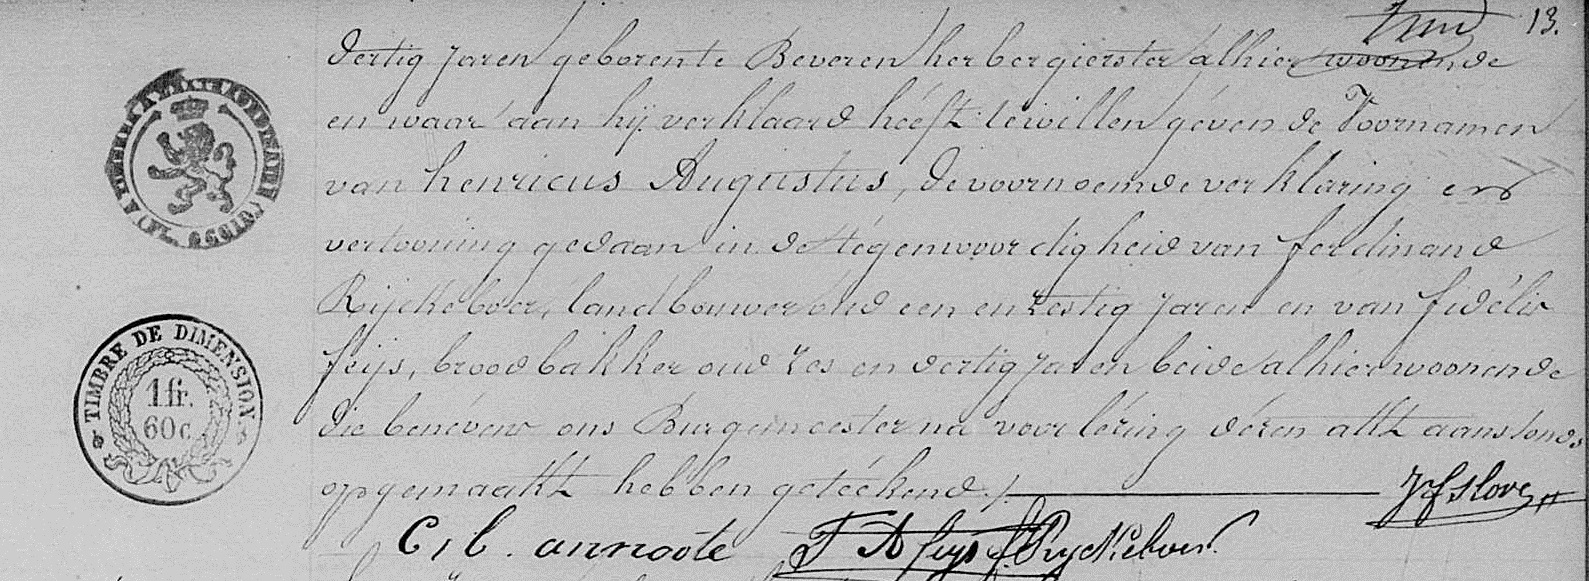 13.
dertig jaren geboren te Beveren herbergierster alhier woonende
en waar aan hij verklaard hééft te willen géven de Voornamen
van henricus Augustus, de voornoemde verklaring en
vertooning gedaan in de tégenwoordigheid van ferdinand
Rijckeboer, landbouwer oud een en zestig jaren en van fidélis
feijs, broodbakker oud zes en dertig jaren beide alhier woonende
die benévens ons Burgemeester na voorlézing déren akt aanstonds
opgemaakt hebben getéékend ./.
C, L. annoote F A feys f. Ryckeboer.
TIMBRE DE DIMENSION
1 fr.
60 c